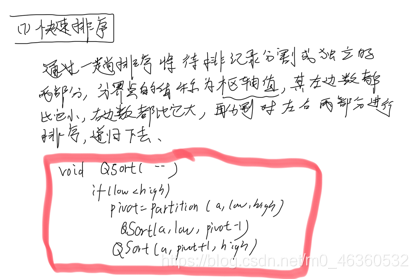 (1) 快速排序
通过一趟排序将待排记录分割成独立的
两部分，分界点的值称为枢轴值，其左边数都
比它小，右边数都比它大，再分别对左右两部分进行
排序，递归下去、
void QSort( -- )
if(low<high)
pivot=partition (a,low,high)
QSort(a,low,pivot-1)
QSort(a,pivot+1,high)
https://blog.csdn.net/m0_46360532